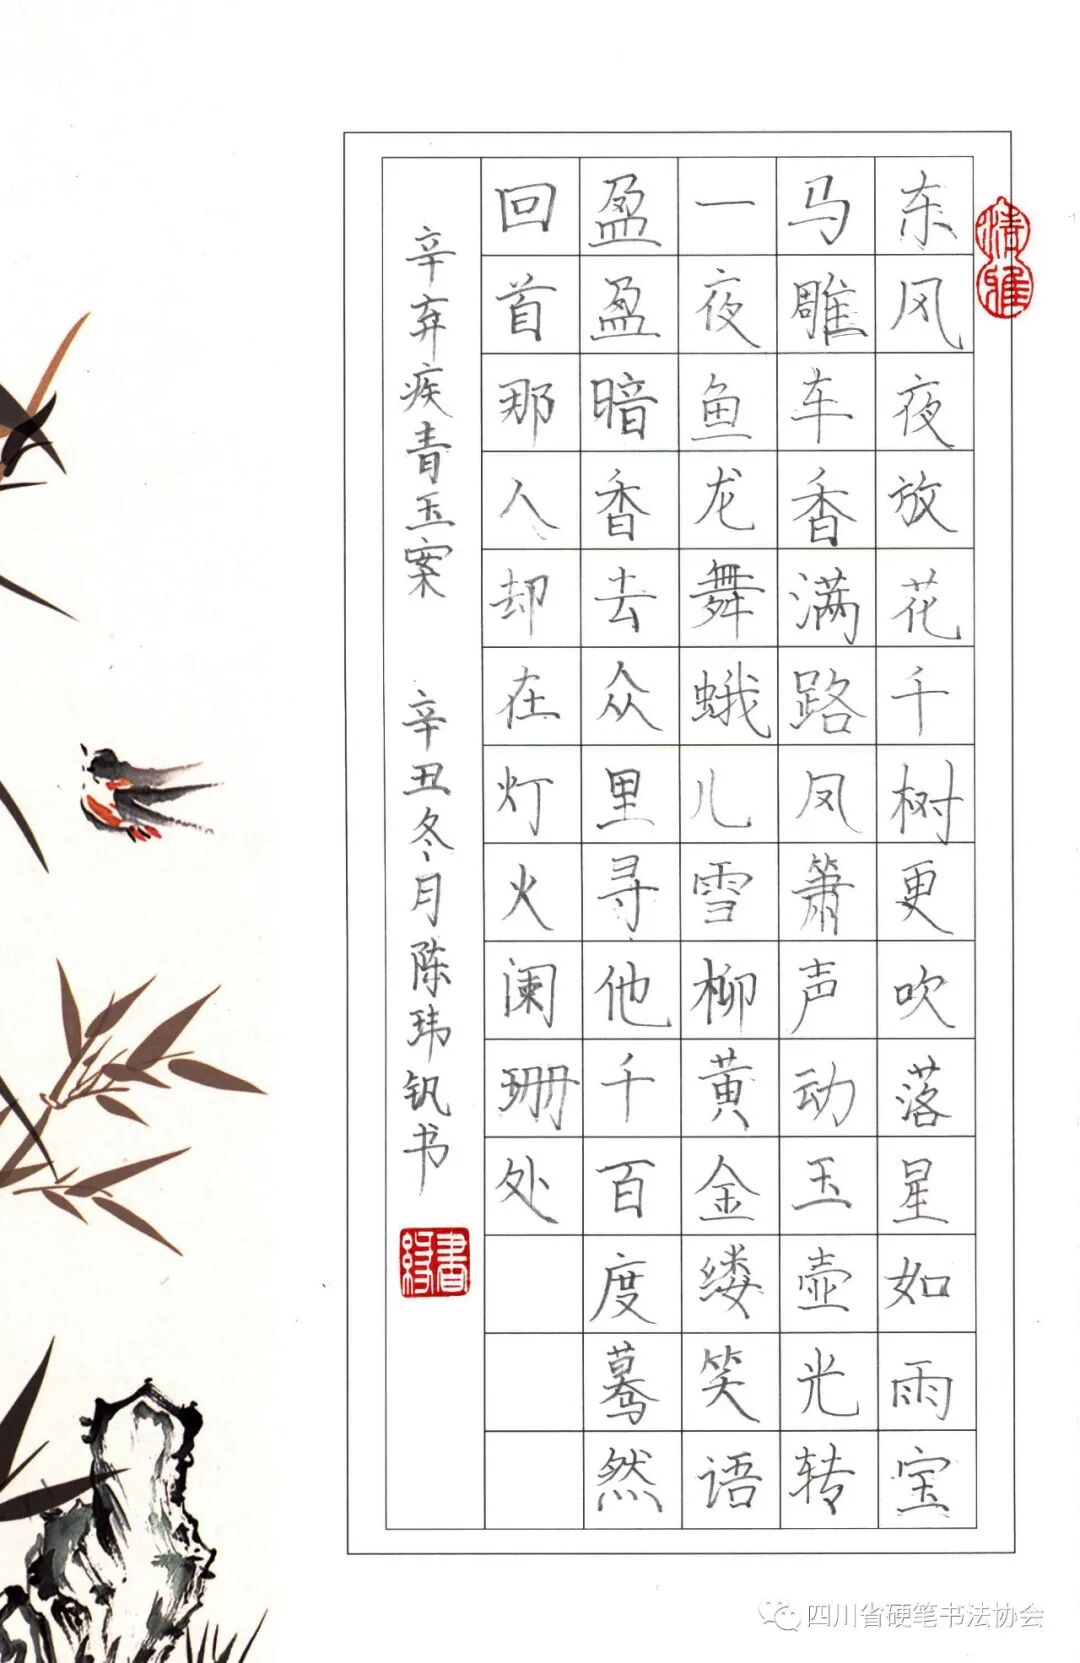 清雅
东风夜放花千树更吹落星如雨宝
马雕车香满路凤箫声动玉壶光转
一夜鱼龙舞蛾儿雪柳黄金缕笑语
盈盈暗香去众里寻他千百度蓦然
回首那人却在灯火阑珊处
辛弃疾青玉案 辛丑冬月陈玮钒书
書緣
四川省硬笔书法协会